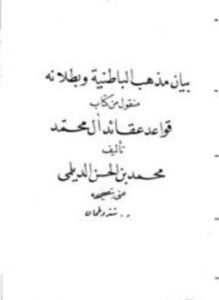 بيان مذهب الباطنية وبطلانه
منقول من كتاب
قواعد عقائد آل محمد
تأليف
محمد بن الحسن الديلمي
عنى بتصحيحه
ر. شتروطمان